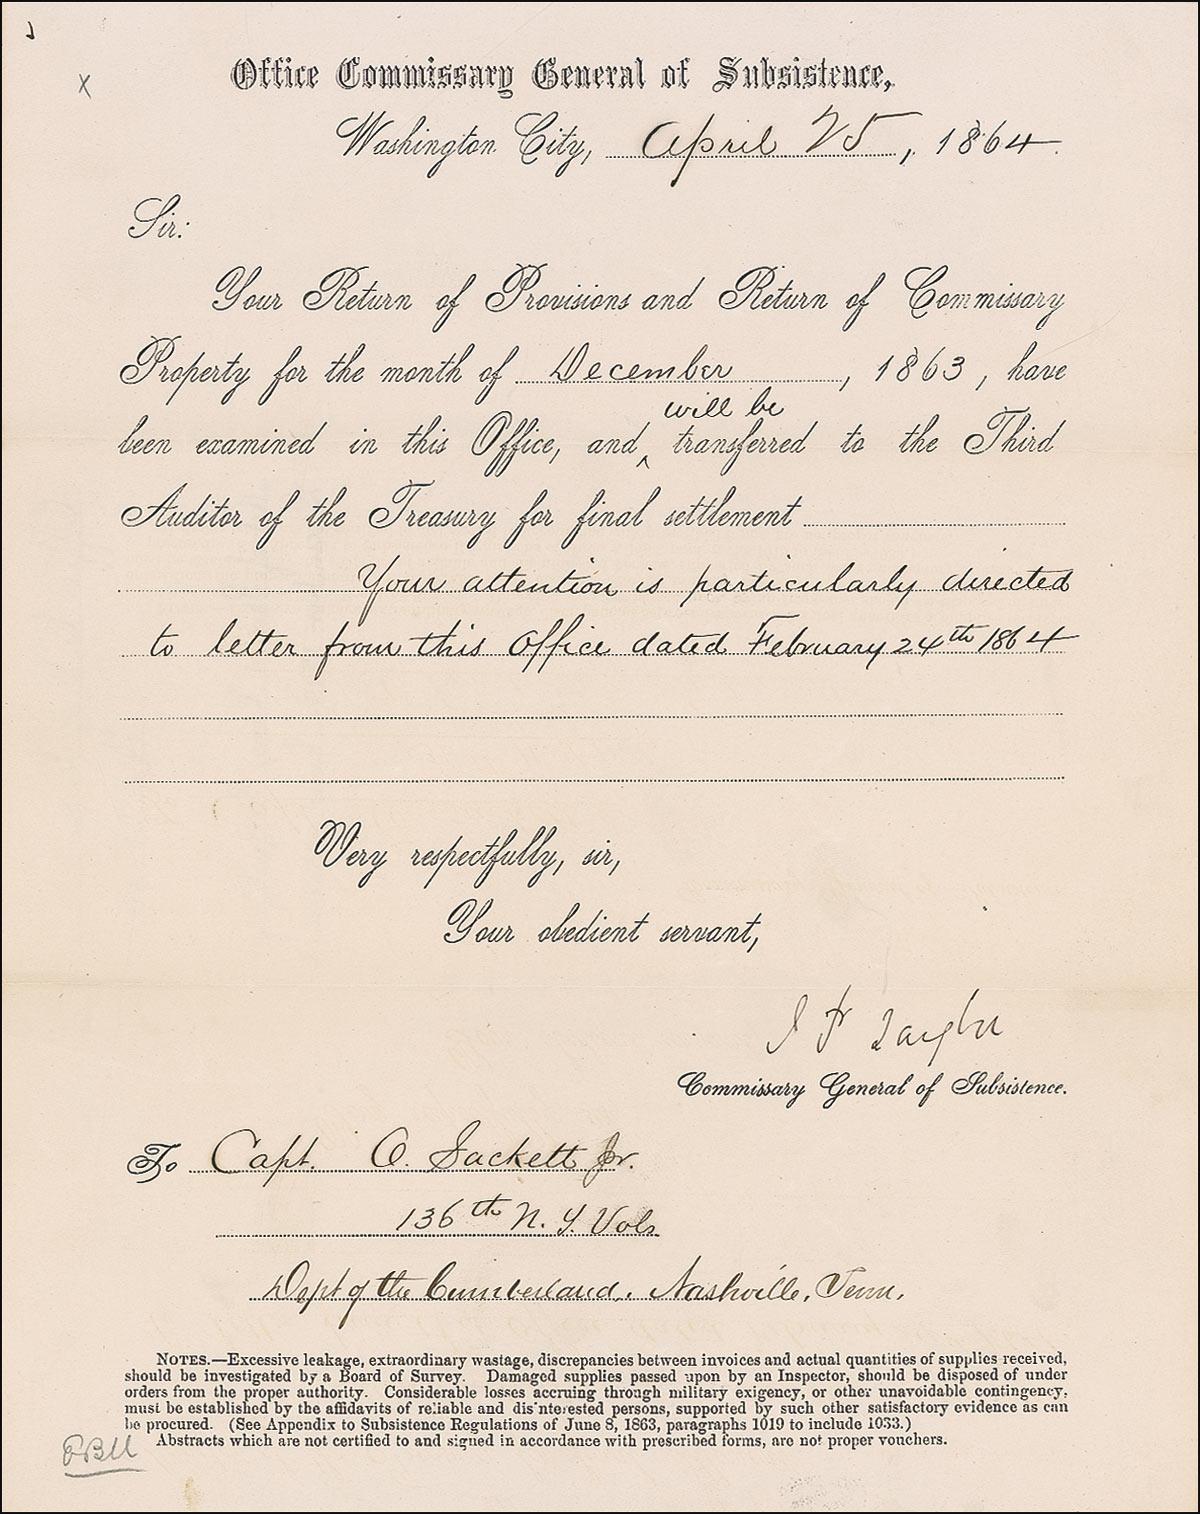 Office Commissary General of Subsistence,
Washington City, April 25, 1864.
Sir:
Your Return of Provisions and Return of Commissary
Property for the month of December, 1863, have
will be
been examined in this Office, and ‸ transferred to the Third
Auditor of the Treasury for final settlement
Your attention is particularly directed
to letter from this Office dated February 24th 1864
Very respectfully, sir,
Your obedient servant,
J P Taylor
Commissary General of Subsistence.
To Capt. O. Sackett Jr.
136th N. Y. Vols
Dept of the Cumberland, Nashville, Tenn.
NOTES.—Excessive leakage, extraordinary wastage, discrepancies between invoices and actual quantities of supplies received,
should be investigated by a Board of Survey. Damaged supplies passed upon by an Inspector, should be disposed of under
orders from the proper authority. Considerable losses accruing through military exigency, or other unavoidable contingency,
must be established by the affidavits of reliable and disinterested persons, supported by such other satisfactory evidence as can
be procured. (See Appendix to Subsistence Regulations of June 8, 1863, paragraphs 1019 to include 1033.)
Abstracts which are not certified to and signed in accordance with prescribed forms, are not proper vouchers.